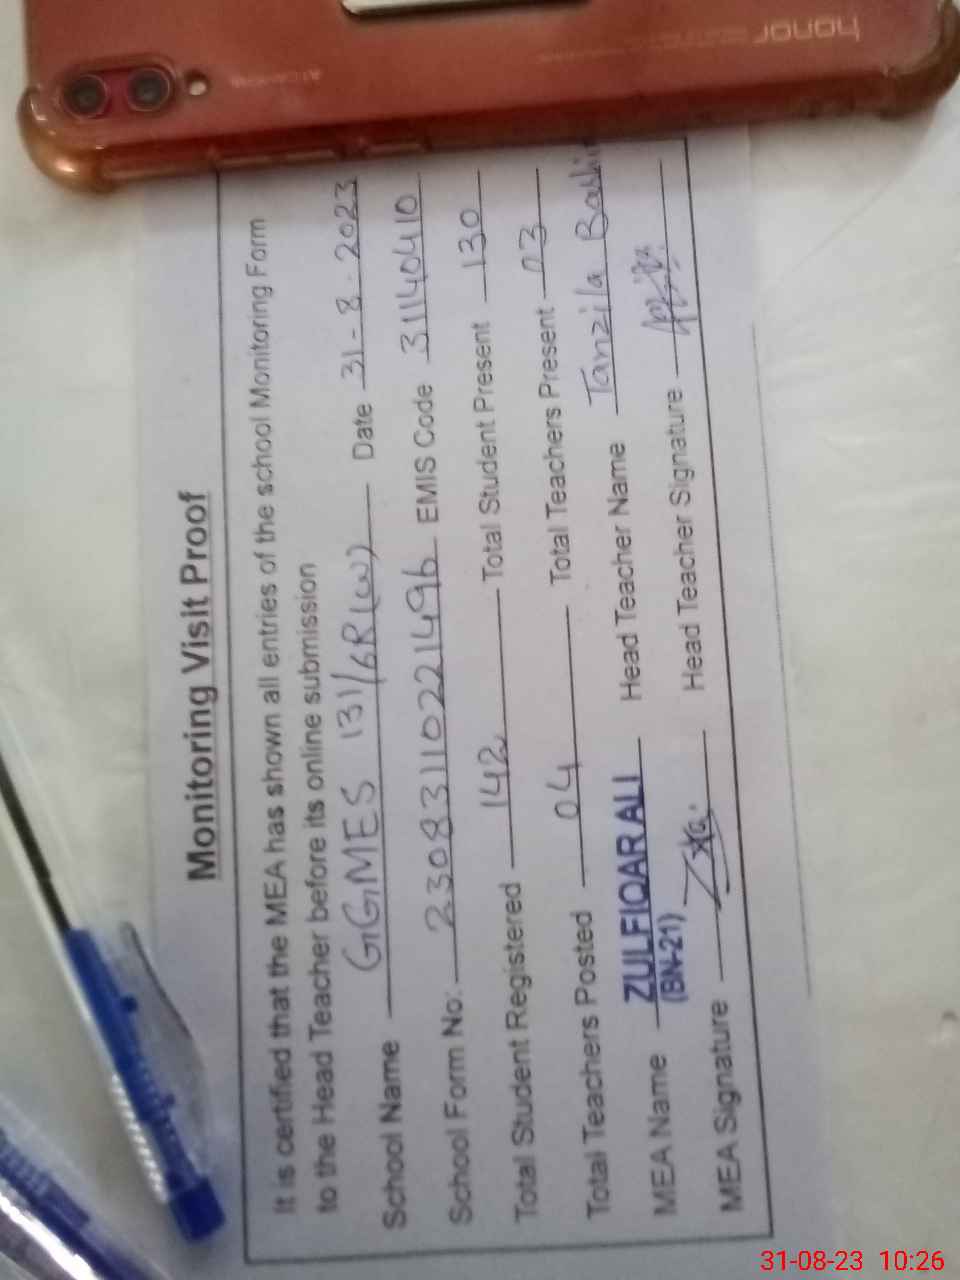 honor
AI CAMERA
Monitoring Visit Proof
It is certified that the MEA has shown all entries of the school Monitoring Form
to the Head Teacher before its online submission
School Name GGMES 131/6R(W) Date 31-8-2023
School Form No: 23083110221496 EMIS Code 31140410
Total Student Registered 142 Total Student Present 130
Total Teachers Posted 04 Total Teachers Present 03
MEA Name ZULFIQAR ALI Head Teacher Name Tanzila Bashir
(BN-21)
MEA Signature Head Teacher Signature
31-08-23 10:26